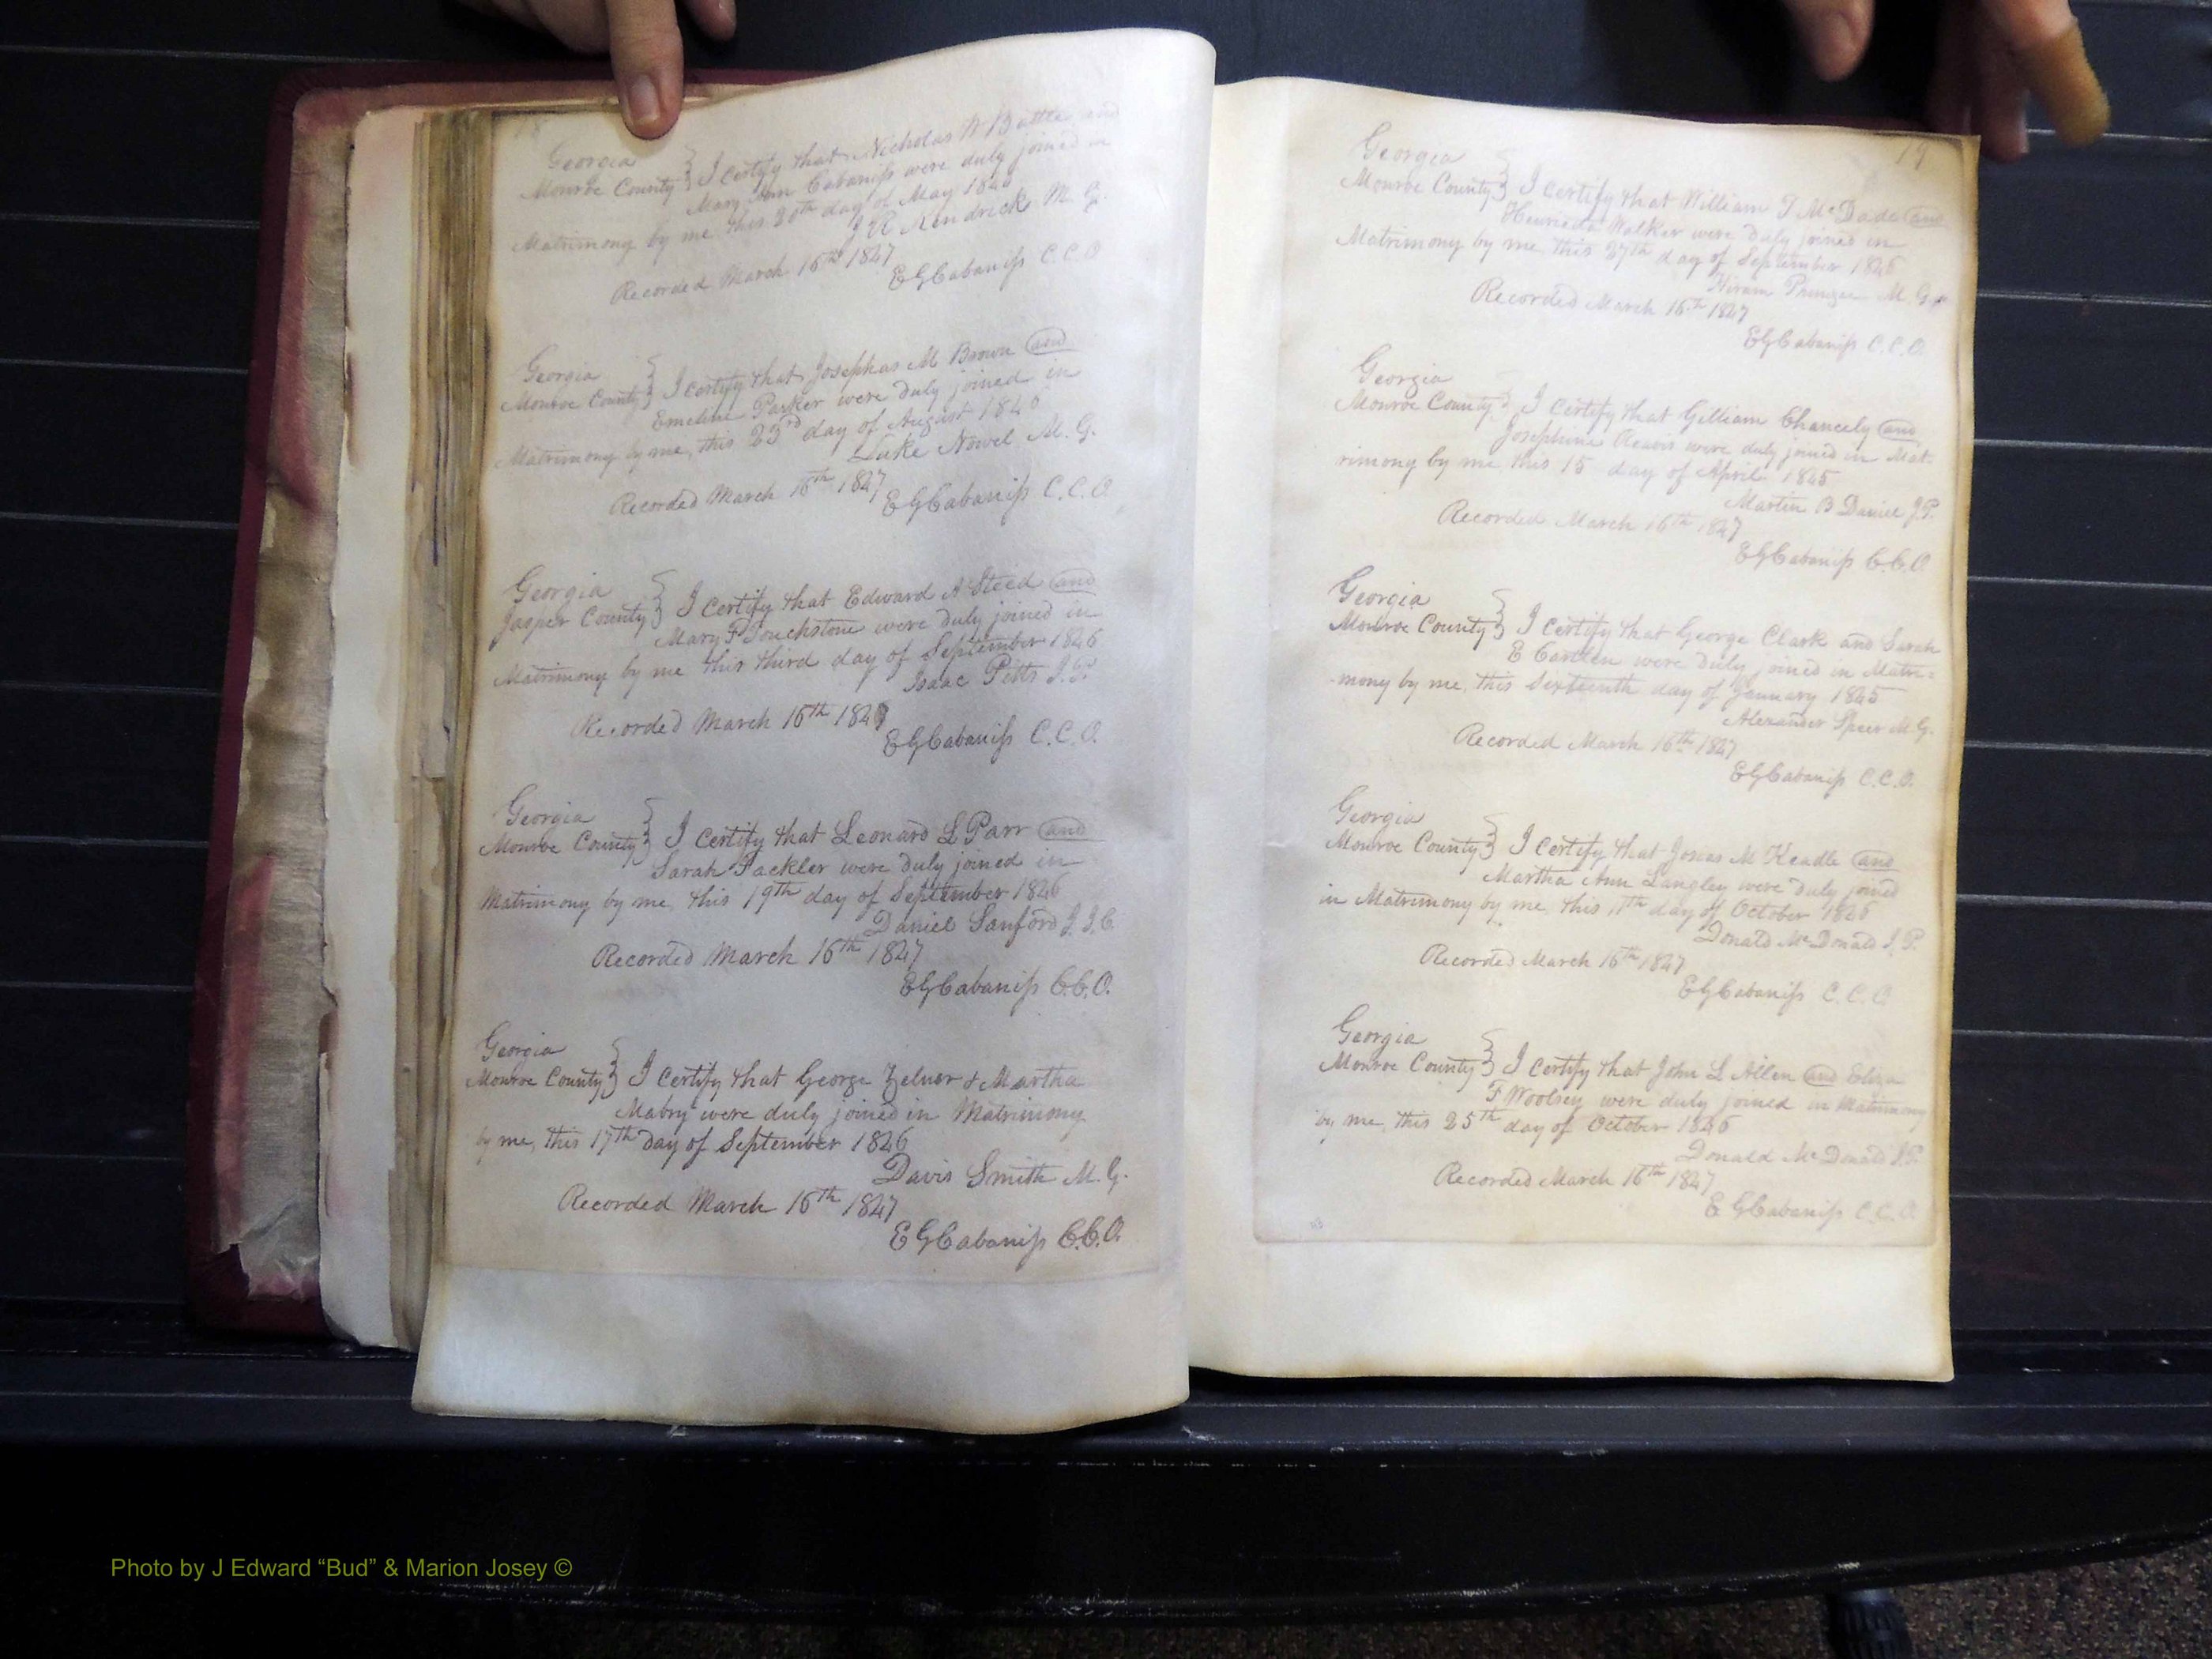 Georgia
Monroe County } I Certify that Nicholas W Battle and
Mary Ann Cabaniss were duly joined in
Matrimony by me this 20th day of May 1846
J R Kendrick M. G.
Recorded March 16th 1847
E G Cabaniss C. C. O
Georgia
Monroe County } I Certify that Josephas M Brown and
Emeline Parker were duly joined in
Matrimony by me, this 23rd day of August 1846
Luke Nowel M. G.
Recorded March 16th 1847
E G Cabaniss C. C. O.
Georgia
Jasper County } I Certify that Edward A Steed and
Mary F Touchstone were duly joined in
Matrimony by me this third day of September 1846
Isaac Pitts J. P.
Recorded March 16th 1847
E G Cabaniss C. C. O.
Georgia
Monroe County } I Certify that Leonard L Parr and
Sarah Fackler were duly joined in
Matrimony by me, this 19th day of September 1846
Daniel Sanford J. I. C.
Recorded March 16th 1847
E G Cabaniss C. C. O.
Georgia
Monroe County } I Certify that George Zelner & Martha
Mabry were duly joined in Matrimony
by me, this 17th day of September 1846
Davis Smith M. G.
Recorded March 16th 1847
E G Cabaniss C. C. O.
19
Georgia
Monroe County } I Certify that William T McDade and
Walker were duly joined in
Matrimony by me, this 27th day of September 1846
Hiram M. G.
Recorded March 16th 1847
E G Cabaniss C. C. O.
Georgia
Monroe County } I Certify that Gilliam Chancely and
Josephine Reavis were duly joined in Mat-
rimony by me, this 15 day of April 1845
Martin B Daniel J. P.
Recorded March 16th 1847
E G Cabaniss C. C. O.
Georgia
Monroe County } I Certify that George Clark and Sarah
E were duly joined in Matri=
-mony by me, this Sixteenth day of January 1845
Alexander Speer M. G.
Recorded March 16th 1847
E G Cabaniss C. C. O.
Georgia
Monroe County } I Certify that Josias M Headle and
Martha Ann Langley were duly joined
in Matrimony by me, this 11th day of October 1846
Donald McDonald J. P.
Recorded March 16th 1847
E G Cabaniss C. C. O
Georgia
Monroe County } I Certify that John L Allen and Eliza
F Woolsey were duly joined in Matrimony
by me, this 25th day of October 1846
Donald McDonald J. P.
Recorded March 16th 1847
E G Cabaniss C. C. O.
Photo by J Edward “Bud” & Marion Josey ©